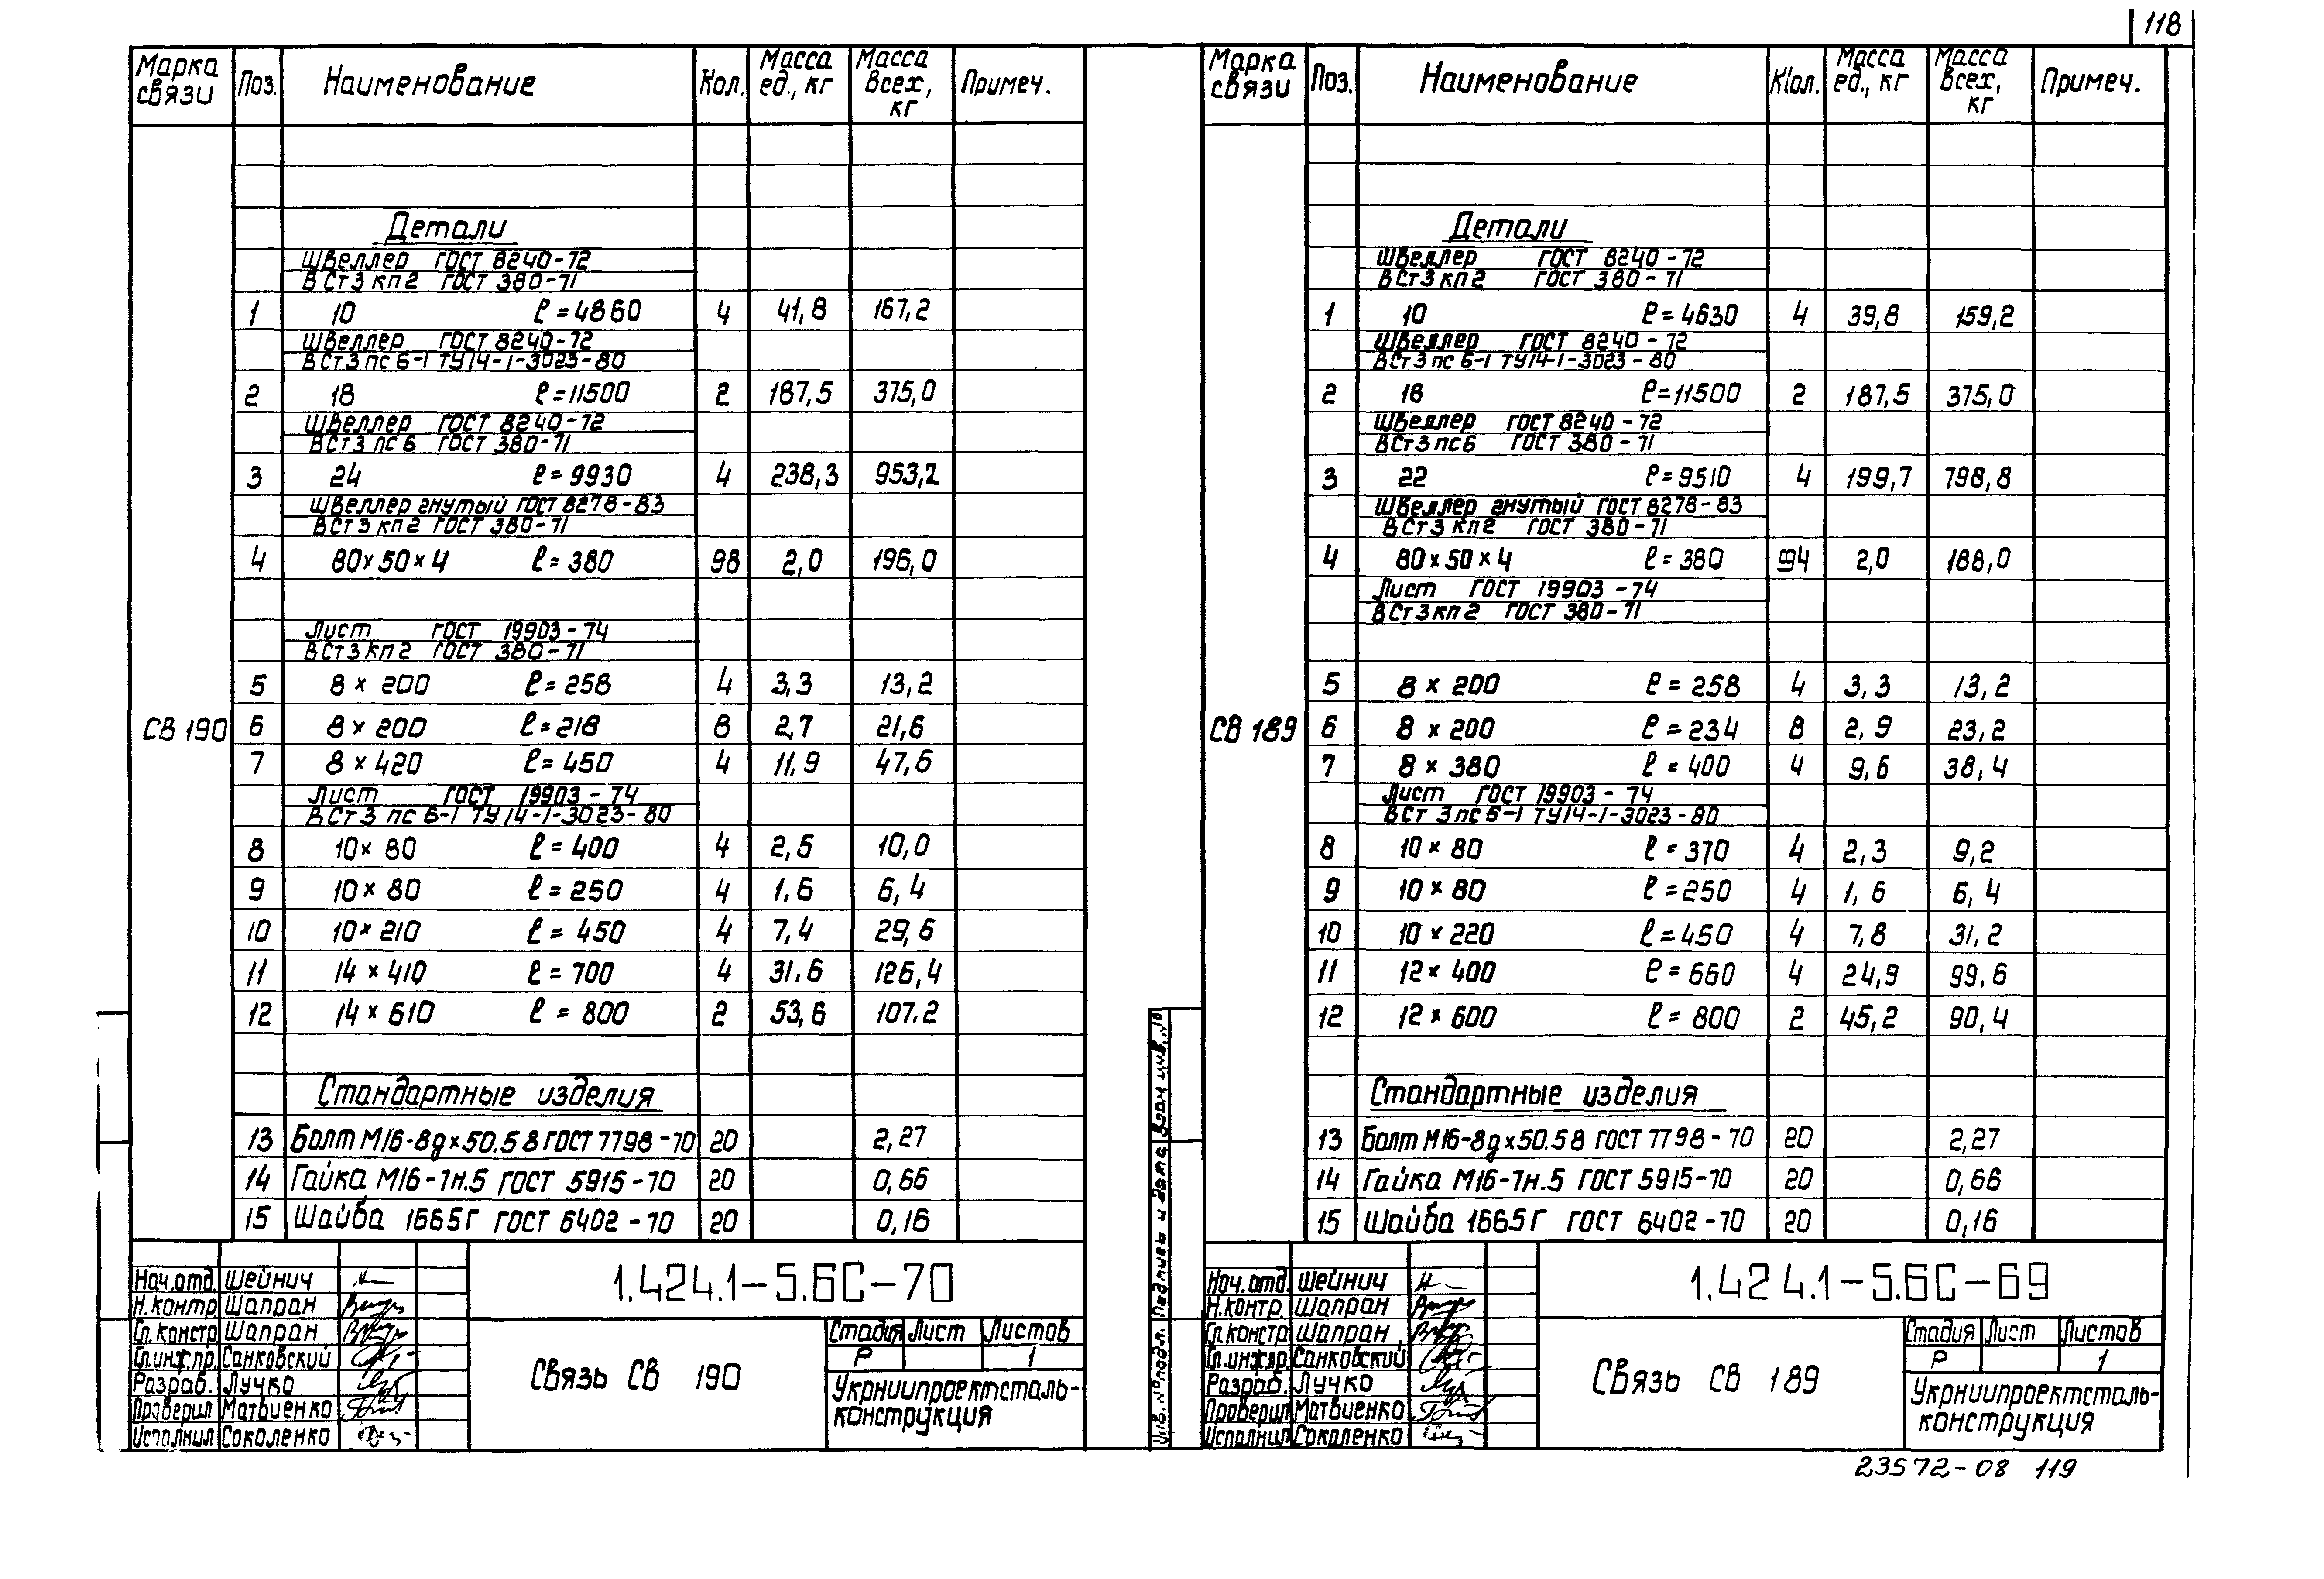 118
Марка связи Поз. Наименование Кол. Масса ед., кг Масса всех, кг Примеч.
Детали
Швеллер ГОСТ 8240-72
ВСт3кп2 ГОСТ 380-71
1 10 ℓ=4860 4 41,8 167,2
Швеллер ГОСТ 8240-72
ВСт3пс6-1 ТУ14-1-3023-80
2 18 ℓ=11500 2 187,5 375,0
Швеллер ГОСТ 8240-72
ВСт3пс6 ГОСТ 380-71
3 24 ℓ=9930 4 238,3 953,2
Швеллер гнутый ГОСТ 8278-83
ВСт3кп2 ГОСТ 380-71
4 80×50×4 ℓ=380 98 2,0 196,0
Лист ГОСТ 19903-74
ВСт3кп2 ГОСТ 380-71
5 8×200 ℓ=258 4 3,3 13,2
СВ 190 6 8×200 ℓ=218 8 2,7 21,6
7 8×420 ℓ=450 4 11,9 47,6
Лист ГОСТ 19903-74
ВСт3пс6-1 ТУ14-1-3023-80
8 10×80 ℓ=400 4 2,5 10,0
9 10×80 ℓ=250 4 1,6 6,4
10 10×210 ℓ=450 4 7,4 29,6
11 14×410 ℓ=700 4 31,6 126,4
12 14×610 ℓ=800 2 53,6 107,2
Стандартные изделия
13 Болт М16-8g×50.58 ГОСТ 7798-70 20 2,27
14 Гайка М16-7н.5 ГОСТ 5915-70 20 0,66
15 Шайба 1665Г ГОСТ 6402-70 20 0,16
Нач.отд. Шейнич
Н.контр. Шапран
Гл.констр. Шапран
Гл.инж.пр. Санковский
Разраб. Лучко
Проверил Матвиенко
Исполнил Соколенко
1.424.1-5.6С-70
Связь СВ 190
Стадия Лист Листов
Р 1
Укрниипроектсталь-
конструкция
Марка связи Поз. Наименование Кол. Масса ед., кг Масса всех, кг Примеч.
Детали
Швеллер ГОСТ 8240-72
ВСт3кп2 ГОСТ 380-71
1 10 ℓ=4630 4 39,8 159,2
Швеллер ГОСТ 8240-72
ВСт3пс6-1 ТУ14-1-3023-80
2 18 ℓ=11500 2 187,5 375,0
Швеллер ГОСТ 8240-72
ВСт3пс6 ГОСТ 380-71
3 22 ℓ=9510 4 199,7 798,8
Швеллер гнутый ГОСТ 8278-83
ВСт3кп2 ГОСТ 380-71
4 80×50×4 ℓ=380 94 2,0 188,0
Лист ГОСТ 19903-74
ВСт3кп2 ГОСТ 380-71
5 8×200 ℓ=258 4 3,3 13,2
СВ 189 6 8×200 ℓ=234 8 2,9 23,2
7 8×380 ℓ=400 4 9,6 38,4
Лист ГОСТ 19903-74
ВСт3пс6-1 ТУ14-1-3023-80
8 10×80 ℓ=370 4 2,3 9,2
9 10×80 ℓ=250 4 1,6 6,4
10 10×220 ℓ=450 4 7,8 31,2
11 12×400 ℓ=660 4 24,9 99,6
12 12×600 ℓ=800 2 45,2 90,4
Стандартные изделия
13 Болт М16-8g×50.58 ГОСТ 7798-70 20 2,27
14 Гайка М16-7н.5 ГОСТ 5915-70 20 0,66
15 Шайба 1665Г ГОСТ 6402-70 20 0,16
Взам. инв. №
Подпись и дата
Инв. № подл.
Нач.отд. Шейнич
Н.контр. Шапран
Гл.констр. Шапран
Гл.инж.пр. Санковский
Разраб. Лучко
Проверил Матвиенко
Исполнил Соколенко
1.424.1-5.6С-69
Связь СВ 189
Стадия Лист Листов
Р 1
Укрниипроектсталь-
конструкция
23572-08 119